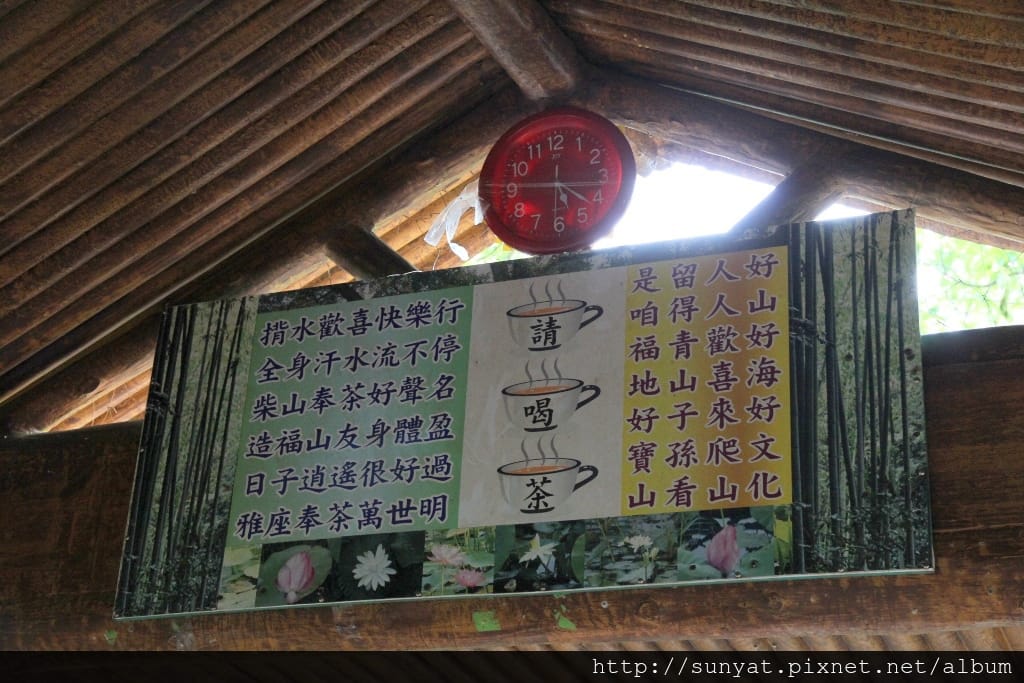 12 1 2 3 4 5 6 7 8 9 10 11
揹水歡喜快樂行
全身汗水流不停
柴山奉茶好聲名
造福山友身體盈
日子逍遙很好過
雅座奉茶萬世明
請
喝
茶
好山好海好文化
人人歡喜來爬山
留得青山子孫看
是咱福地好寶山
http://sunyat.pixnet.net/album